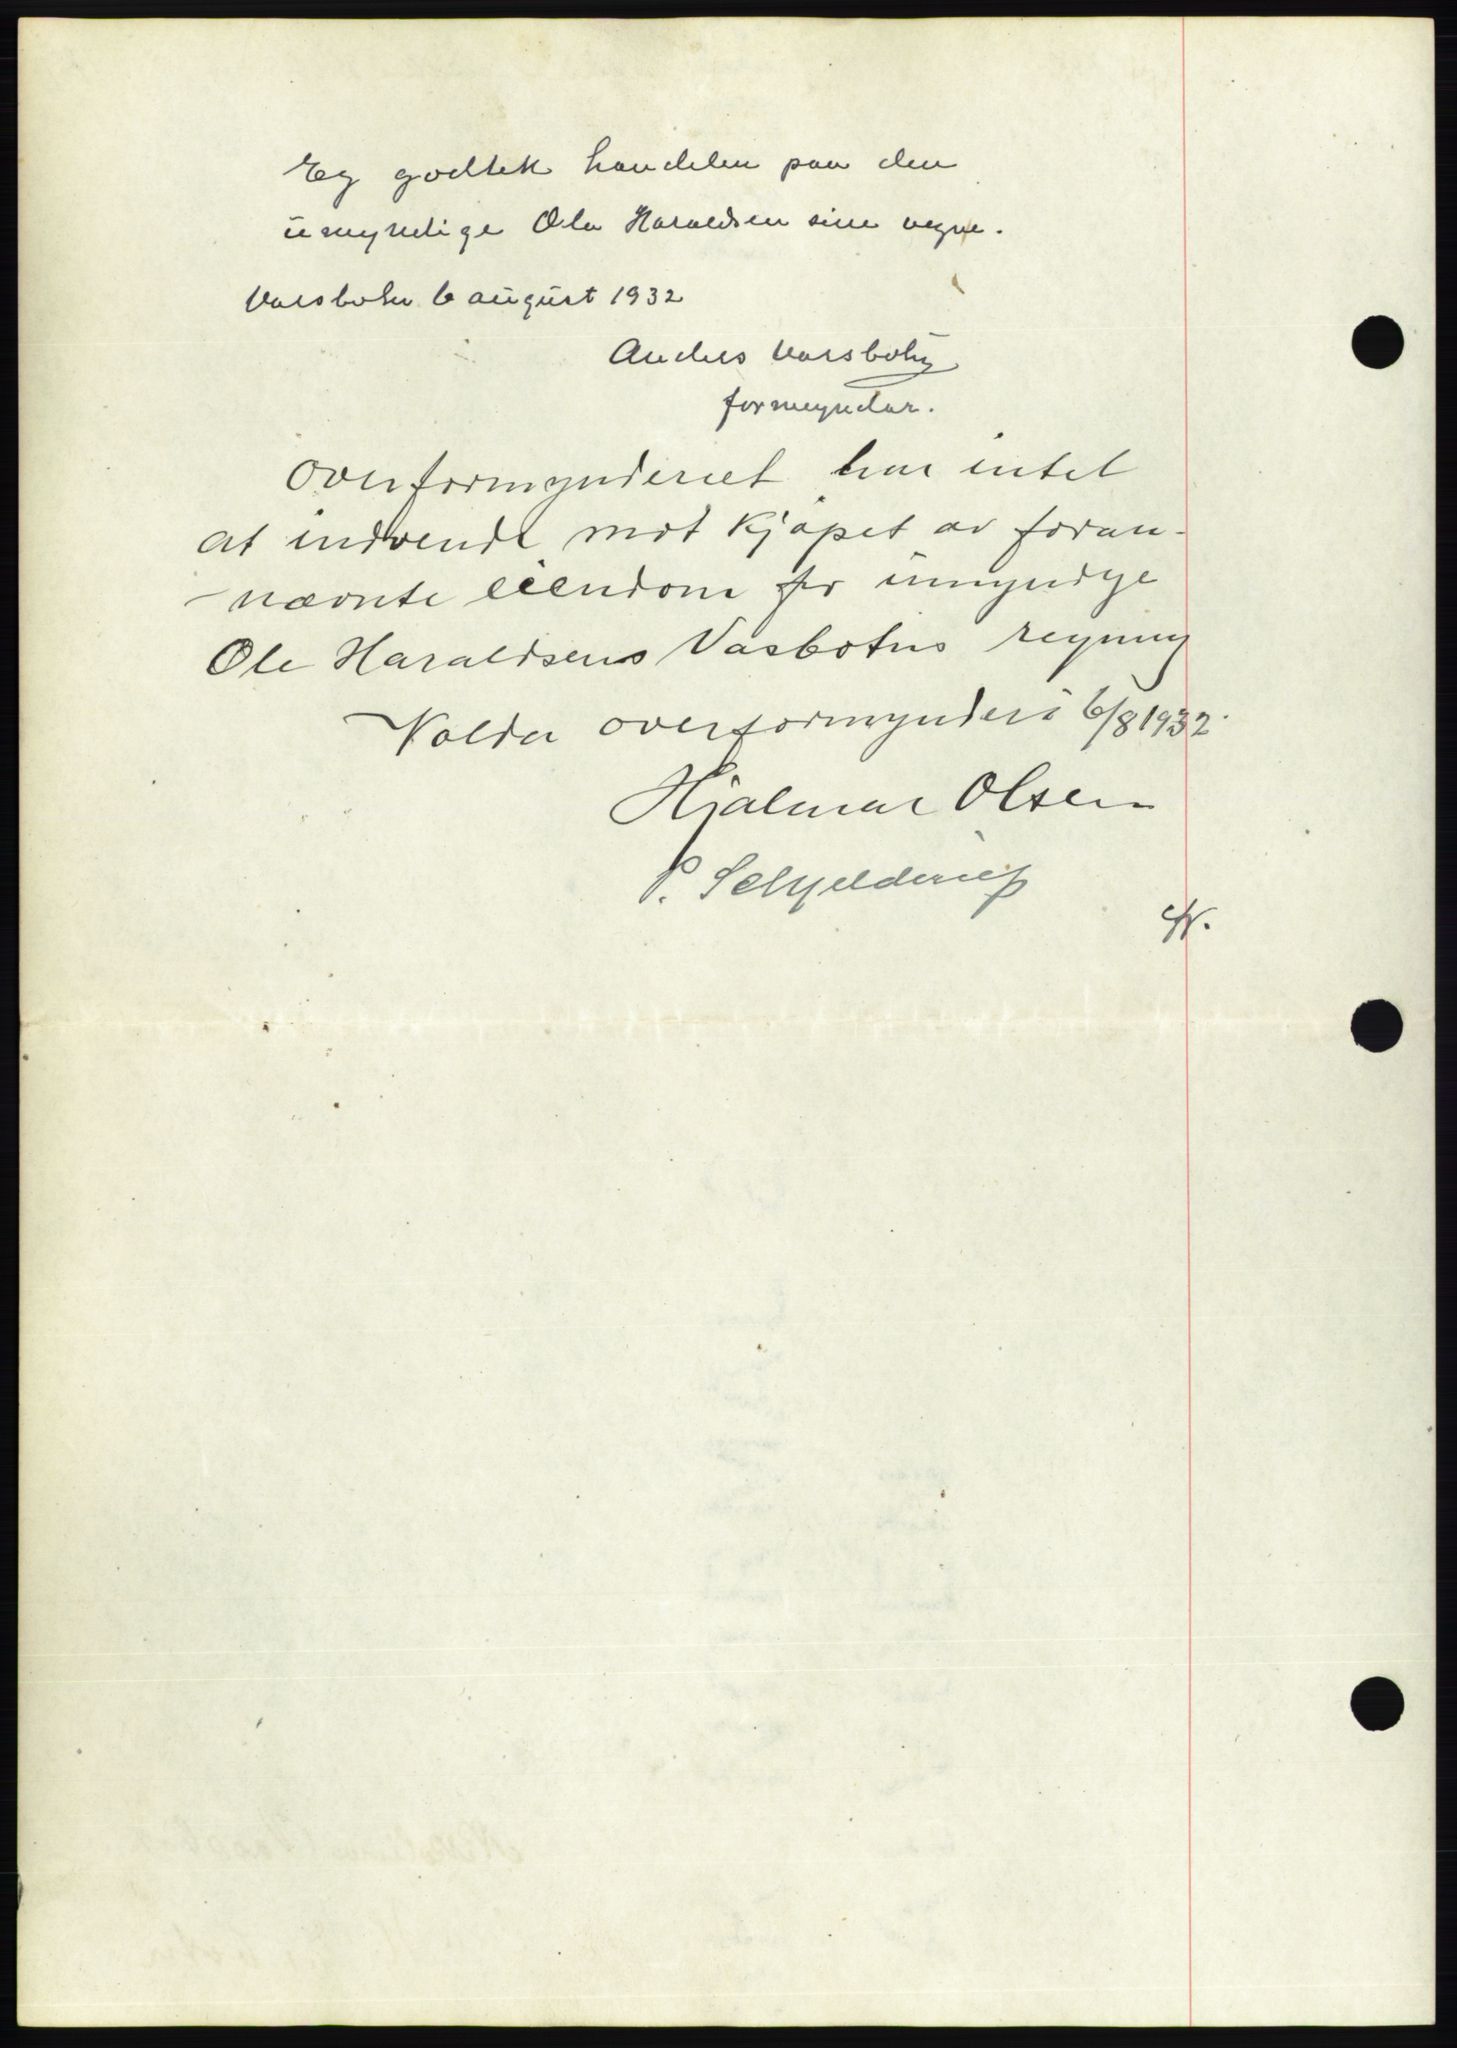 Eg godtek handelen paa den
umyndige Ola Haraldsen sine vegne.
Vassbotn 6 august 1932
Anders Vassbotn
formyndar.
Overformynderiet har intet
at indvende mot kjøpet av foran-
-nævnte eiendom for umyndige
Ole Haraldsens Vasbotns regning
Volda overformynderi 6/8 1932.
Hjalmar Olsen
P. Schjelderup